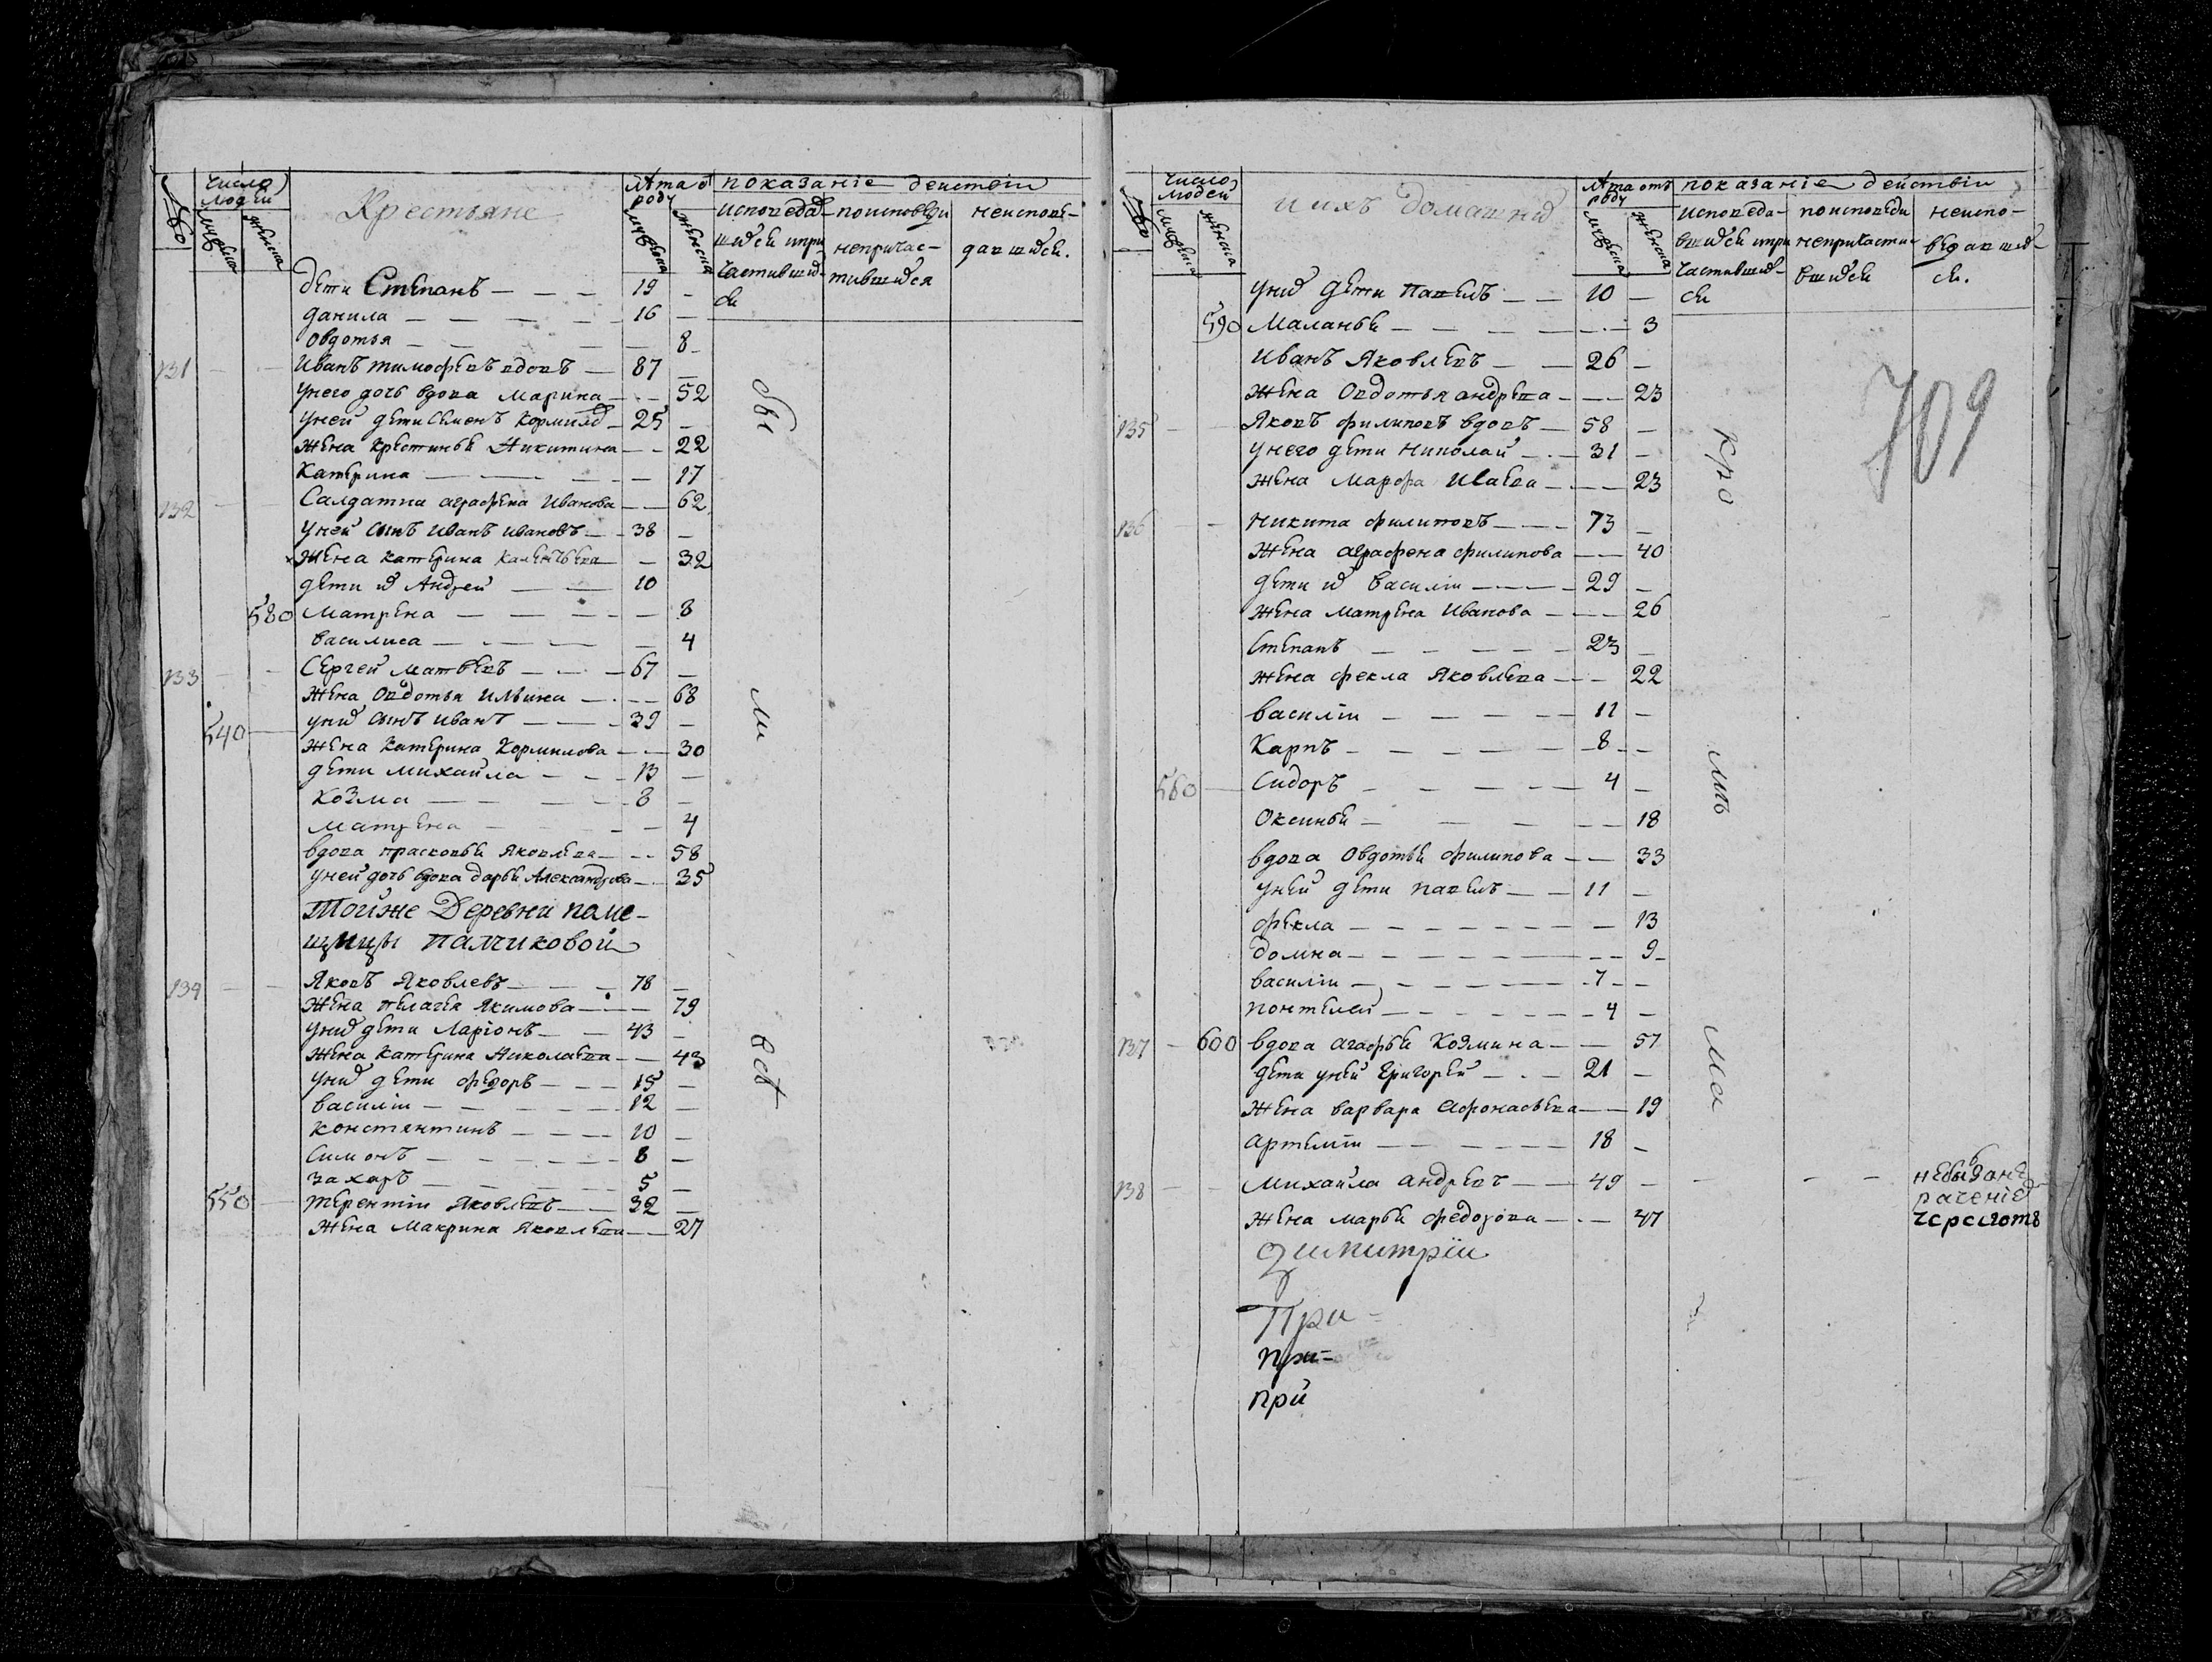 число людей
Крестьяне
лѣта от роду
показаніе действіи
мужеска женска
мужеска женска
исповеда-
поисповеди
неиспове-
шихся и при
непричас-
давшихся.
частивших-
тившихся
ся
дети Степанъ — 19 —
данила — 16 —
овдотья — 8
131 Иванъ тимофѣевъ вдовъ — 87 —
унего дочь вдова марина — 52
уней дети Семенъ — 25 —
жена крестинья Никитина — 22
Катерина — 17
132 Салдатка аграфена Иванова — 62
уней сынъ Иванъ Ивановъ — 38 —
жена катерина — 32
дети их Андрей — 10
580 матрена — 8
василиса — 4
133 Сергей матвѣевъ — 67 —
жена Овдотья ильина — 68
540 уних сынъ иванъ — 39 —
жена катерина Кормилова — 30
дети михайла — 13 —
Козма — 8 —
матрена — 4
вдова прасковья Яковлева — 58
уней дочь вдова дарья Александрова — 35
Тойже Деревни поме-
щицы палчиковой
134 Яковъ Яковлевъ — 78 —
Жена пелагея Якимова — 79
уних дети Ларіонъ — 43 —
жена катерина Николаева — 43
уних дети федоръ — 15 —
василіи — 12 —
константинъ — 10 —
Симонъ — 8 —
захаръ — 5 —
550 терентіи Яковлевъ — 32 —
жена макрина Яковлева — 27
бы
ли
всѣ
число людей
и ихъ домашних
лѣта отъ роду
показаніе действіи
мужеска женска
мужеска женска
исповеда-
поисповеди
неиспо-
вшихся и при
непричасти-
ведавших-
частивших-
вшихся
ся.
ся
709
уних дети павелъ — 10 —
590 Маланья — 3
Иванъ Яковлевъ — 26 —
жена Овдотья андреева — 23
135 Яковъ филиповъ вдовъ — 58 —
унего дети николай — 31 —
жена марфа Исаева — 23
136 никита филиповъ — 73 —
жена аграфена филипова — 40
дети их василіи — 29 —
жена матрена Иванова — 26
Степанъ — 23 —
жена фекла Яковлева — 22
василіи — 11 —
Карпъ — 8 —
560 Сидоръ — 4 —
Оксинья — 18
вдова Овдотья филипова — 33
уней дети павелъ — 11 —
фекла — 13
домна — 9
василіи — 7 —
понтелей — 4 —
137 600 вдова агафья Козмина — 57
дети уней Григорей — 21 —
жена варвара афонасьева — 19
артеміи — 18 —
138 михайла андреевъ — 49 —
жена марья федорова — 47
кро
мѣ
ма
небы
рачение
Димитріи
При-
при-
при